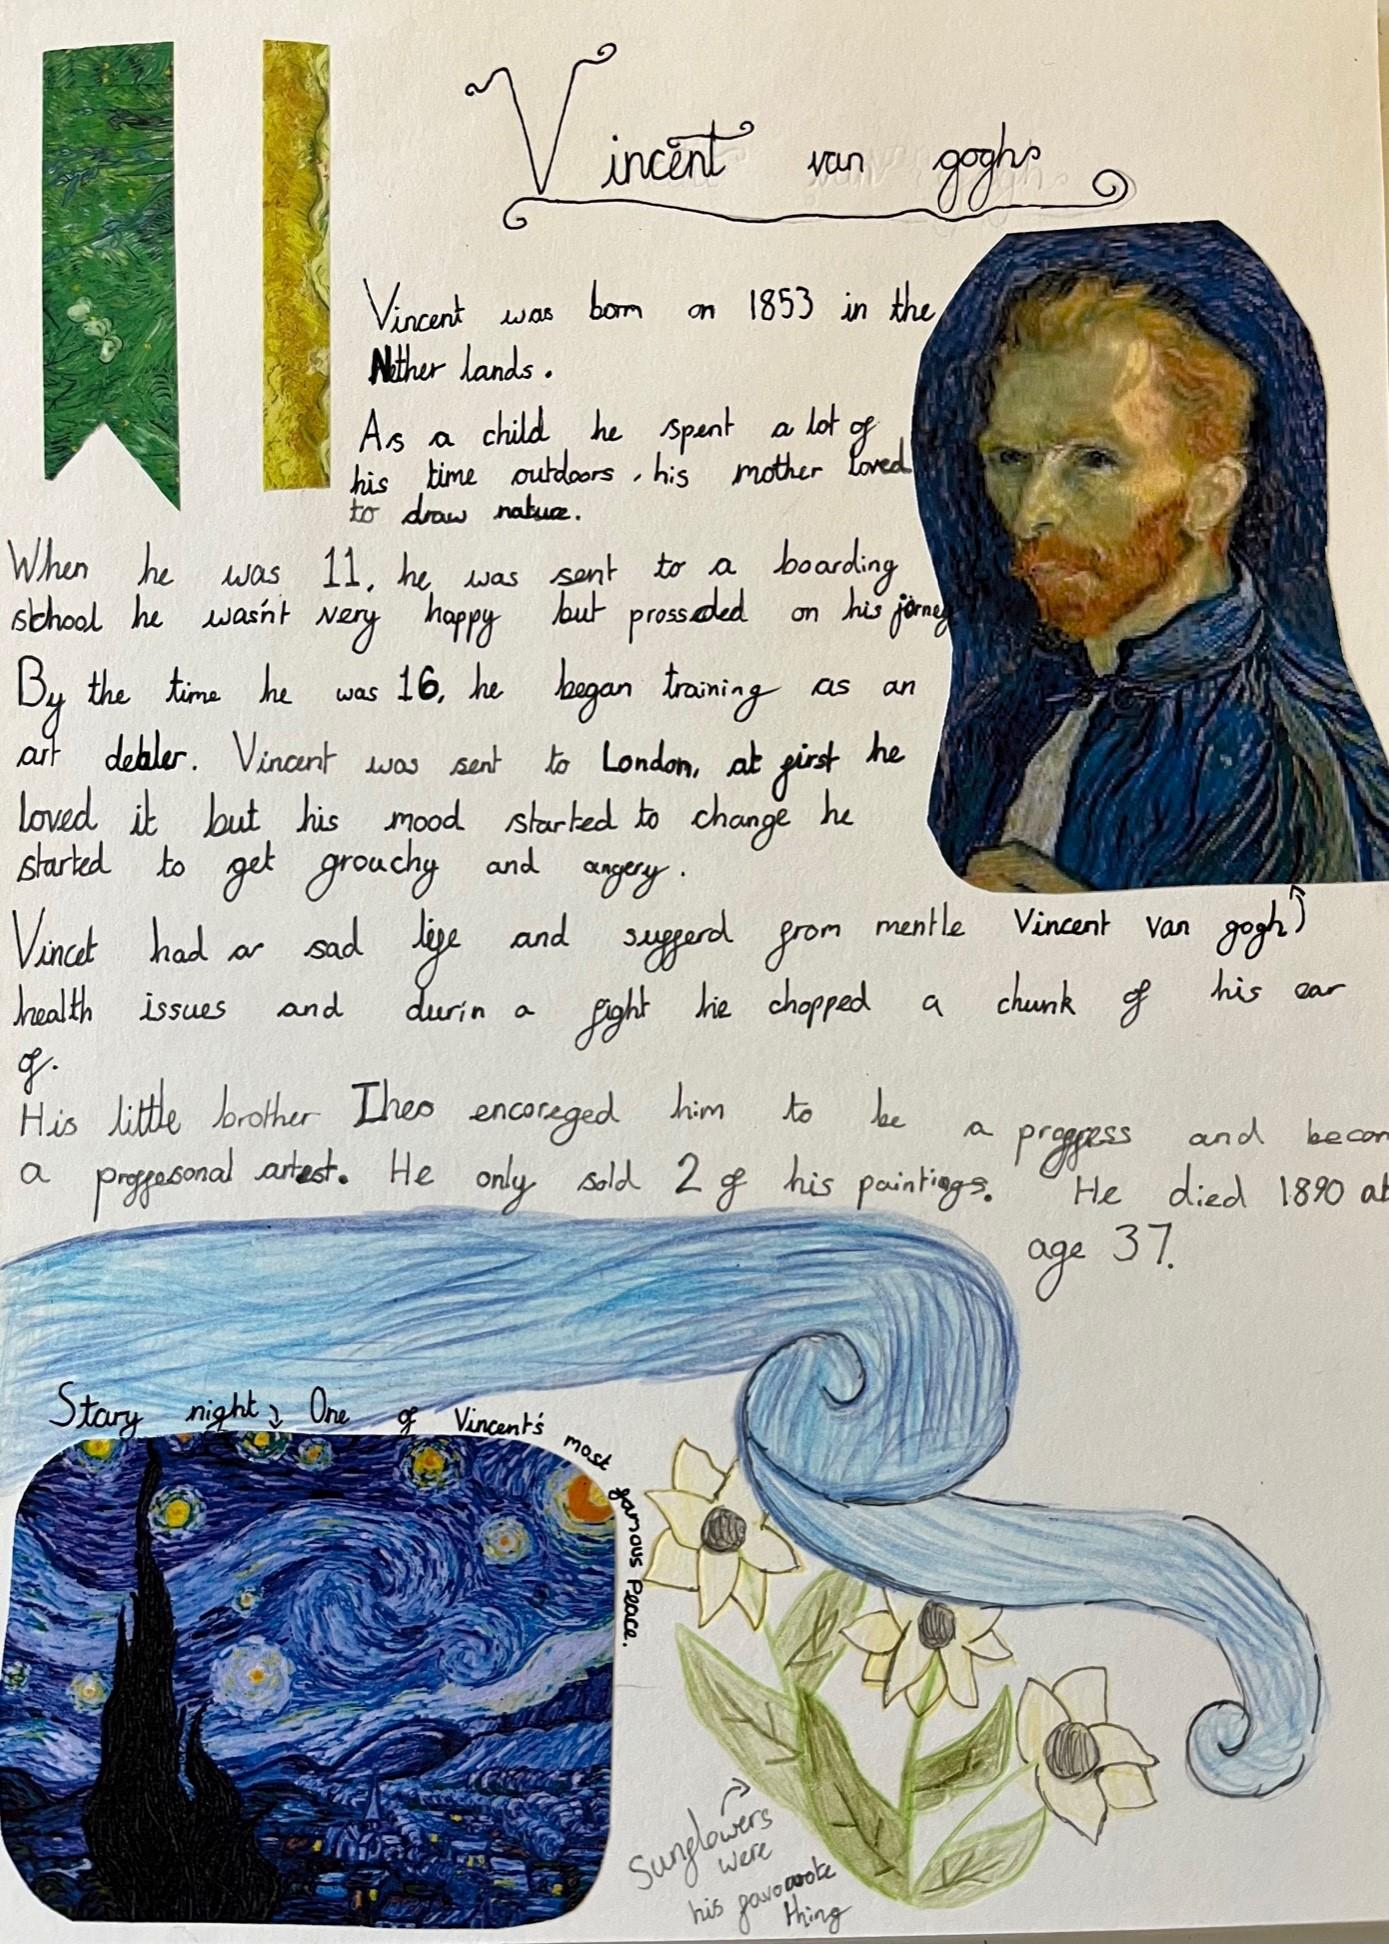 Vincent van gogh
Vincent was born on 1853 in the
Nether lands.
As a child he spent a lot of
his time outdoors, his mother loved
to draw nature.
When he was 11, he was sent to a boarding
school he wasn't very happy but prosseded on his jorney
By the time he was 16, he began training as an
art dealer. Vincent was sent to London, at first he
loved it but his mood started to change he
started to get grouchy and angery.
Vincet had a sad life and sufferd from mentle
Vincent van gogh
health issues and durin a fight he chopped a chunk of his ear
of.
His little brother Theo encoreged him to be a and becom
a proffesonal artest. He only sold 2 of his paintings. He died 1890 at
age 37.
Stary night, One of Vincent's most famous Peace.
Sunflowers
were
his
thing